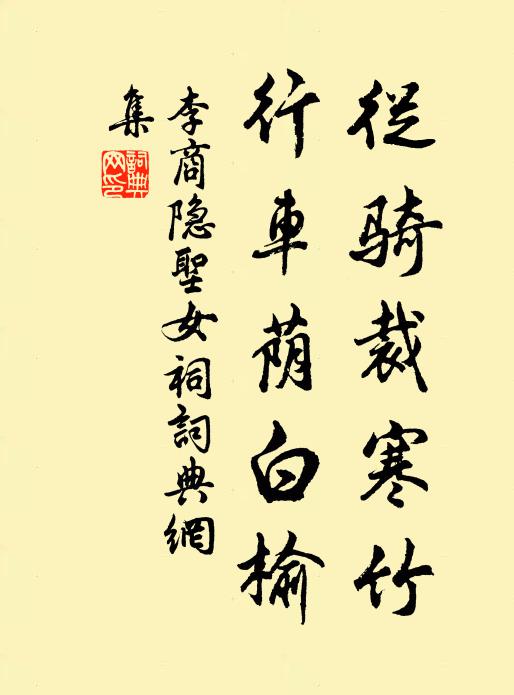 從骑裁寒竹
行車荫白榆
李商隐聖女祠詞典網
集
詞典
网印